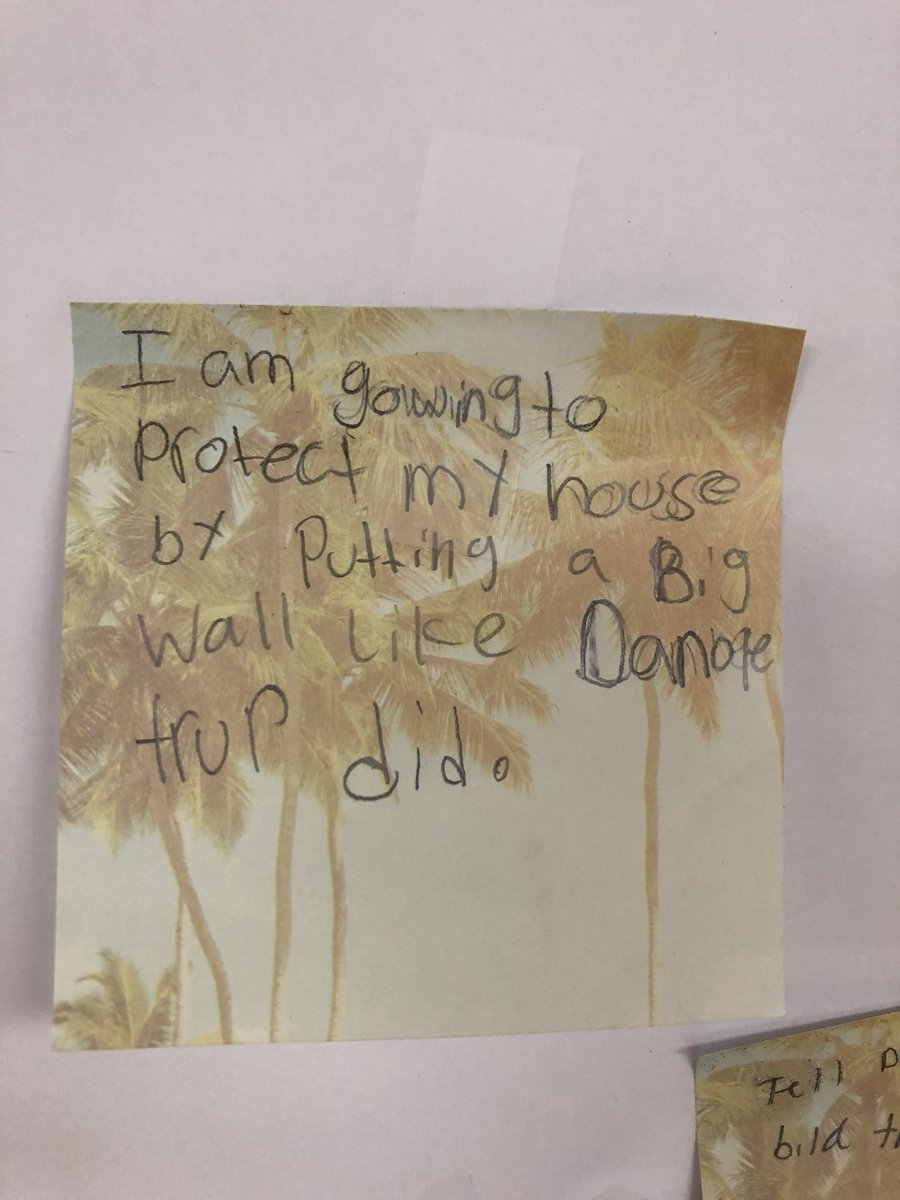 I am gowing to
protect my house
by Putting a Big
Wall Like Damage
trup did.
Tell
bild